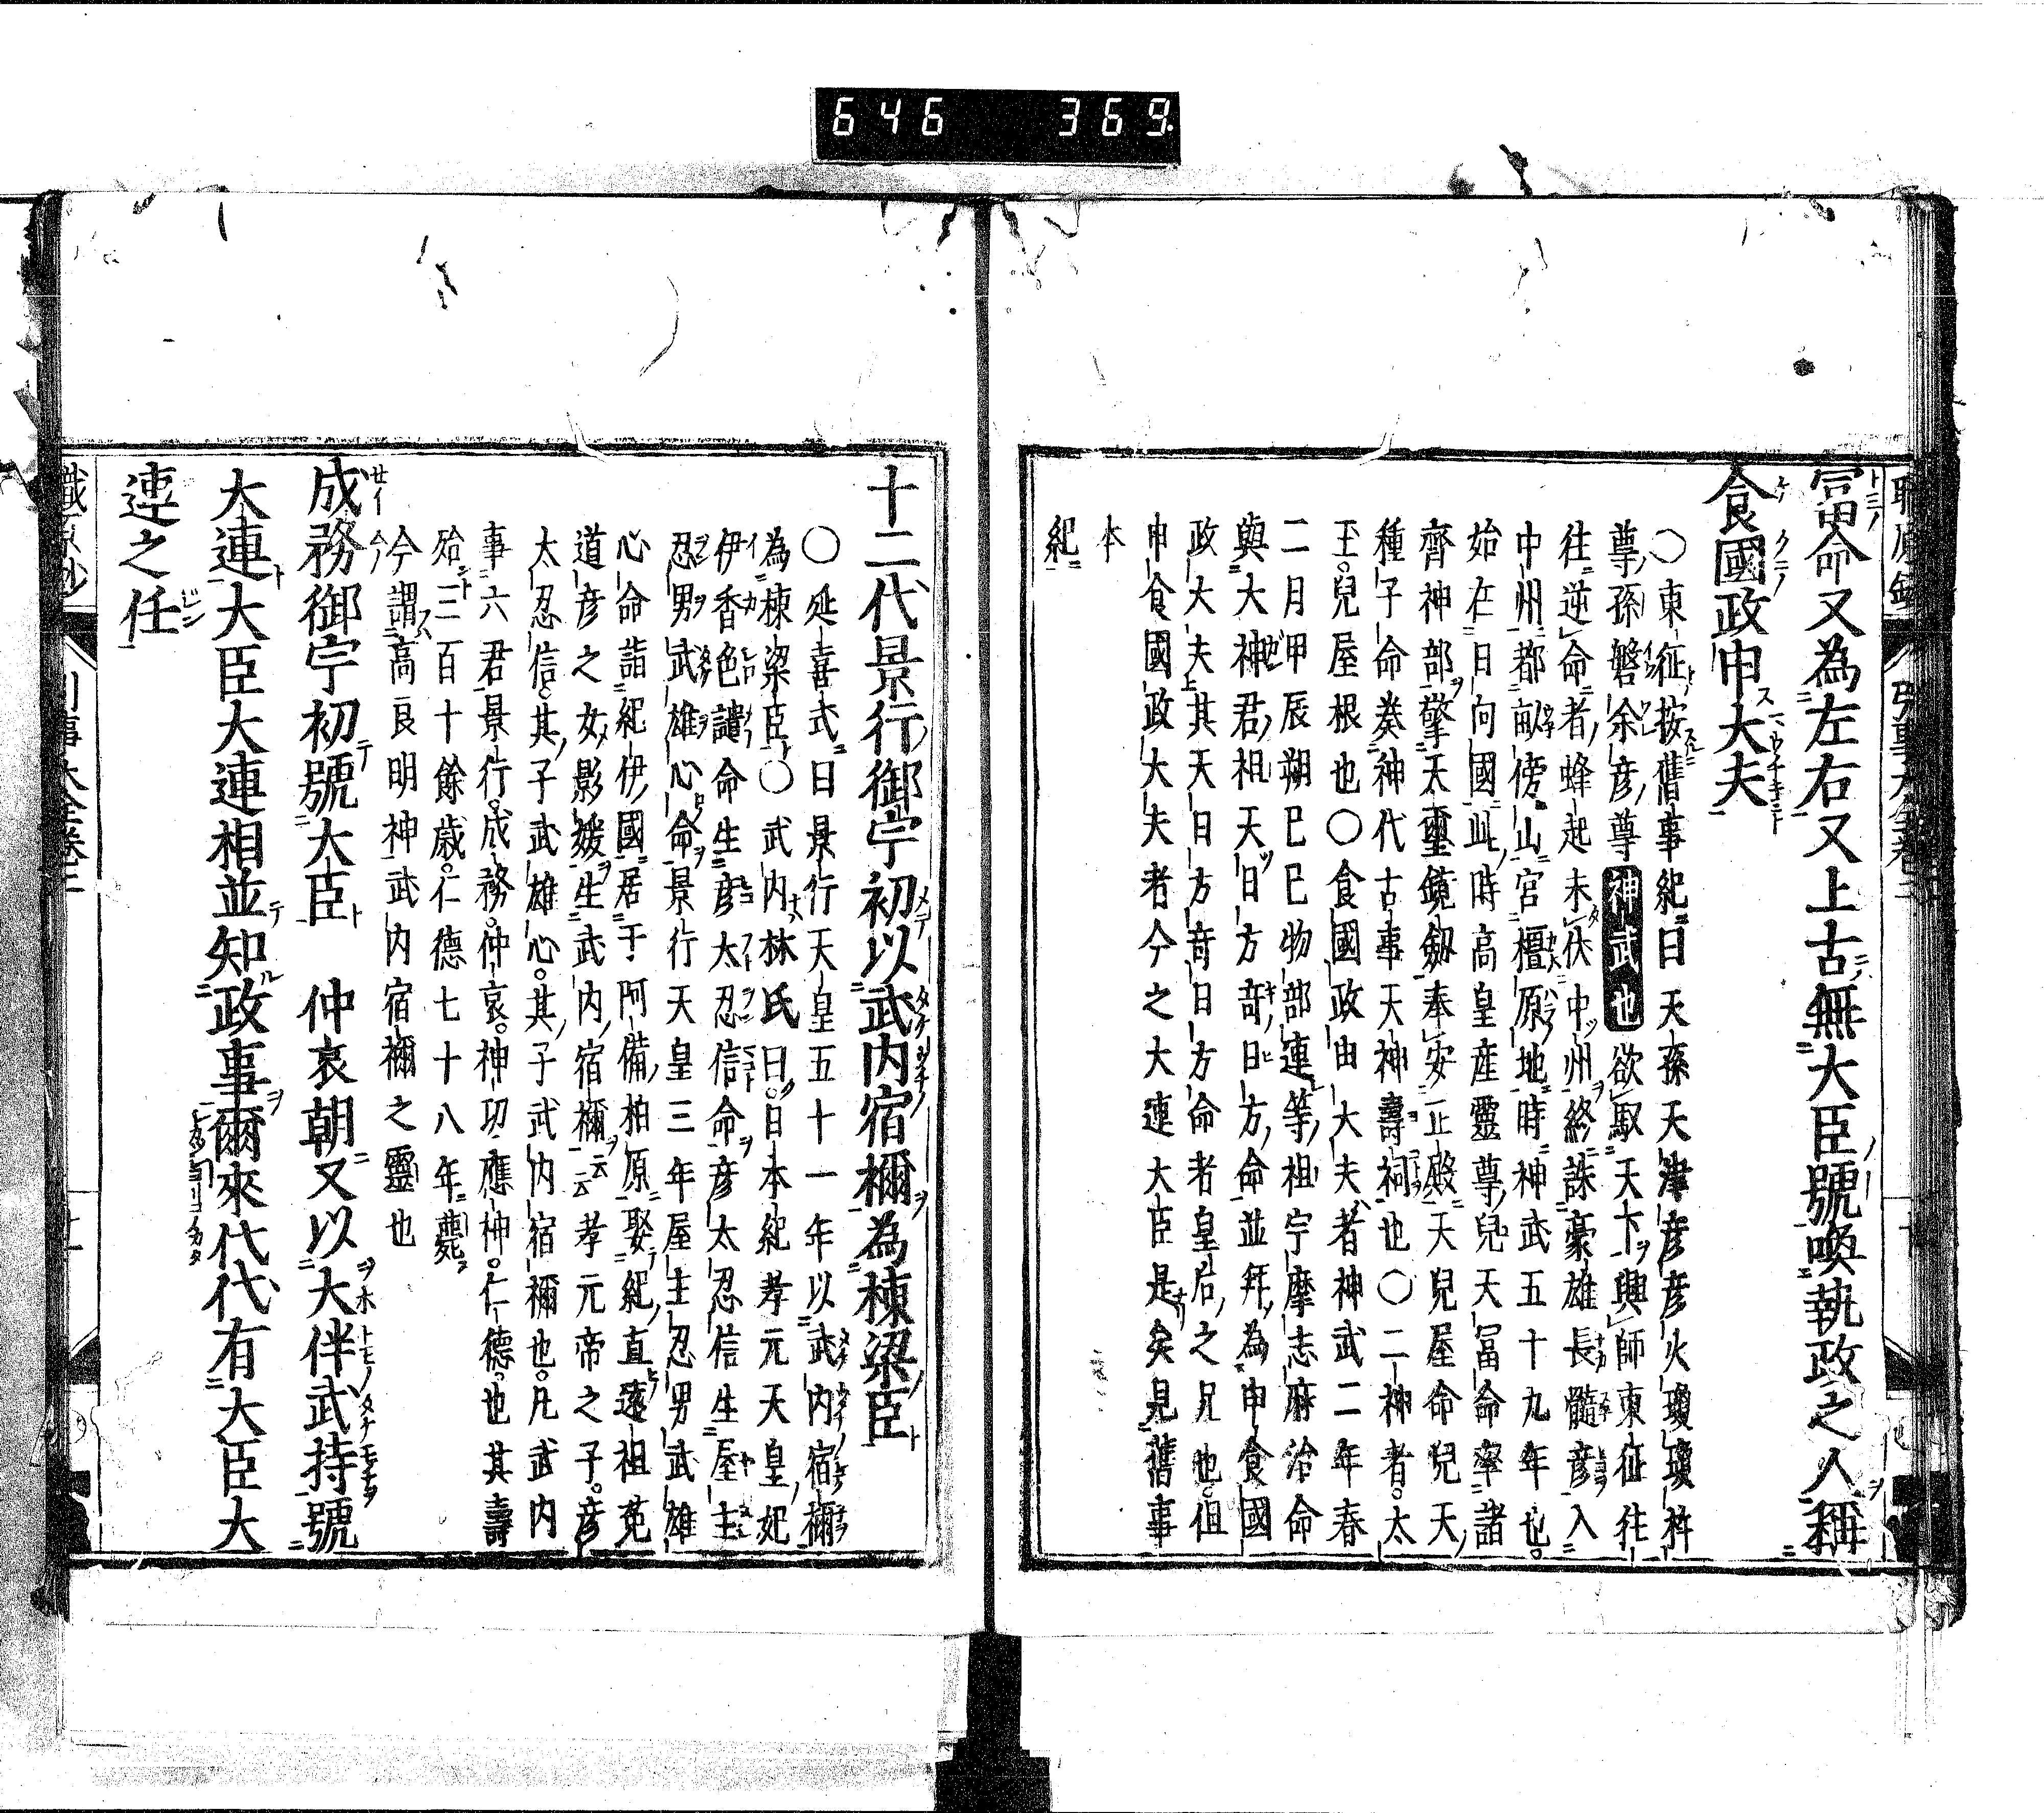 646 369
富命又為左右又上古無大臣號喚執政之人稱
食國政申大夫
〇東征按舊事紀曰天孫天津彦彦火瓊瓊杵
尊孫磐余彦尊神武也欲馭天下興師東征往
往逆命者蜂起未伏中州終誅豪雄長髓彦入
中州都畝傍山宮橿原地時神武五十九年也
始在日向國此時高皇産靈尊兒天冨命率諸
齊神部擎天璽鏡劔奉安正殿天兒屋命兒天
種子命奏神代古事天神壽祠也〇二神者太
玉兒屋根也〇食國政申大夫者神武二年春
二月甲辰朔巳巳物部連等祖宇摩志麻治命
與大神君祖天日方竒日方命並拜為申食國
政大夫其天日方竒日方命者皇后之兄也但
申食國政大夫者今之大連大臣是矣見舊事
本
紀
十二代景行御宇初以武内宿禰為棟梁臣
〇延喜式曰景行天皇五十一年以武内宿禰
為棟梁臣〇武内林氏曰日本紀孝元天皇妃
伊香色謎命生彦太忍信命彦太忍信生屋主
忍男武雄心命景行天皇三年屋主忍男武雄
心命詣紀伊國居于阿備柏原娶紀直遠祖菟
道彦之女影媛生武内宿禰云云孝元帝之子彦
太忍信其子武雄心其子武内宿禰也凡武内
事六君景行成務仲哀神功應神仁德也其壽
殆三百十餘歳仁德七十八年薨
今謂高良明神武内宿禰之靈也
成務御宇初號大臣 仲哀朝又以大伴武持號
大連大臣大連相並知政事爾來代代有大臣大
連之任